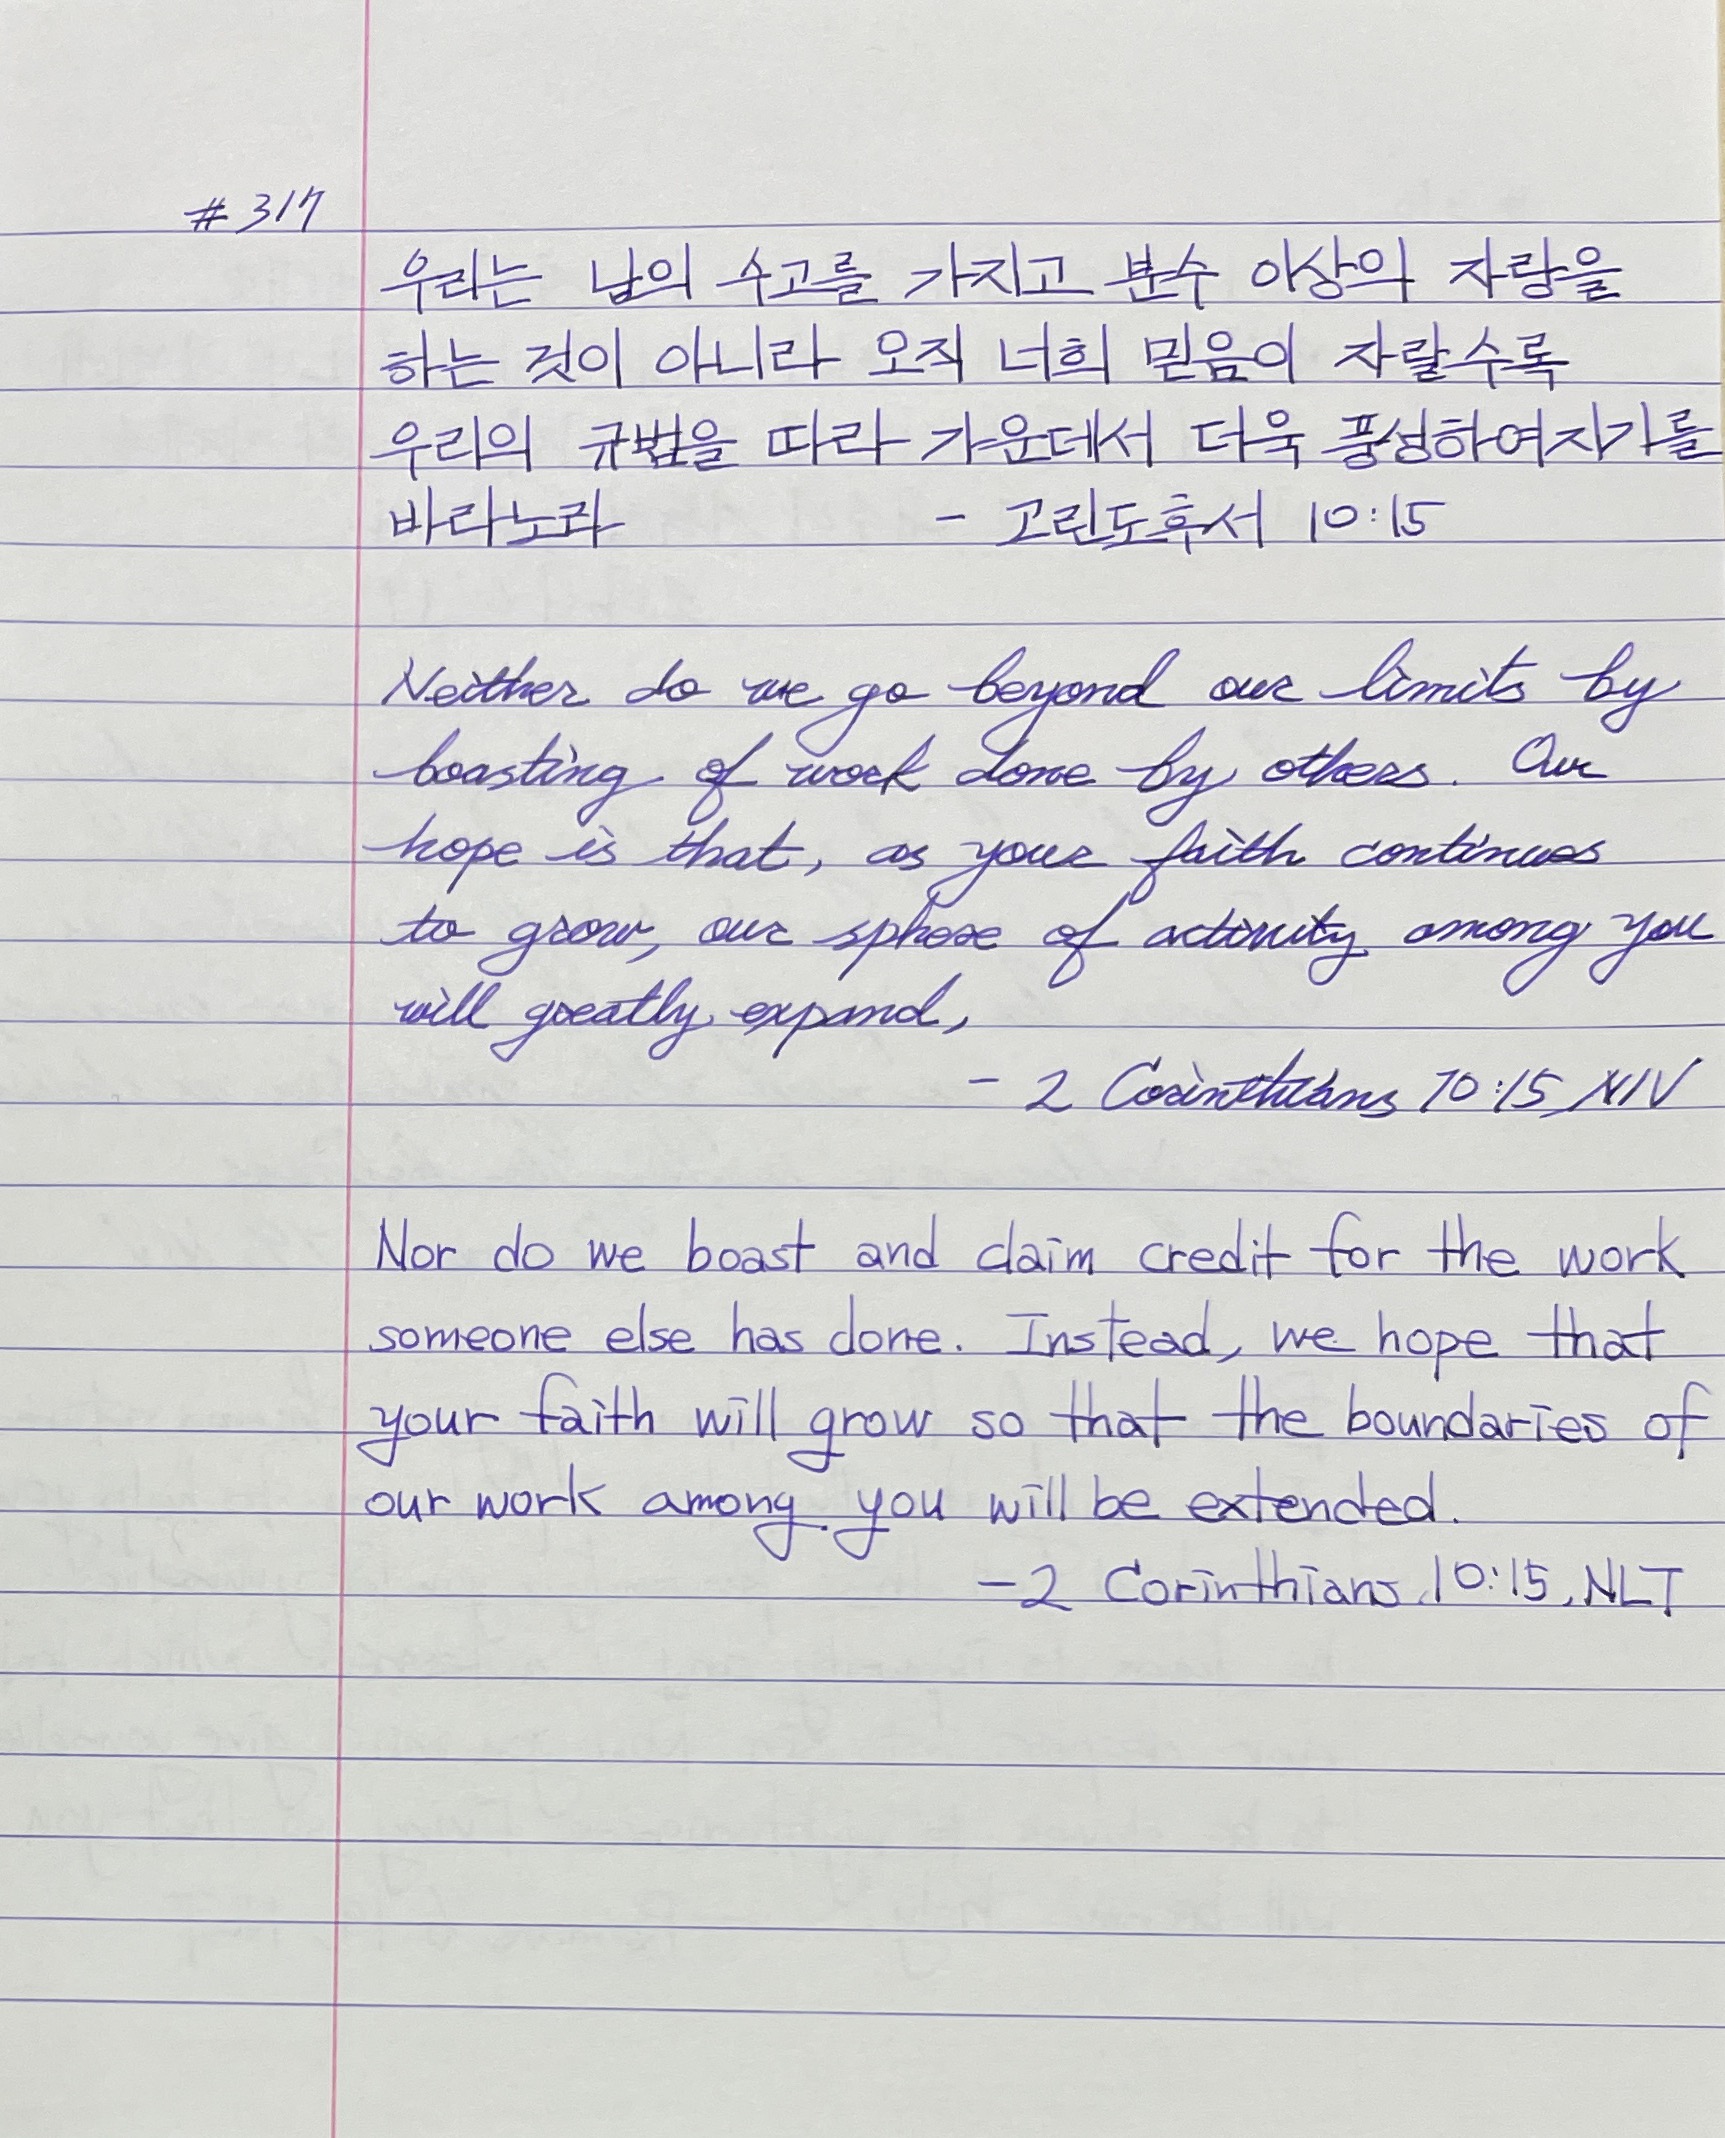 #317
우리는 남의 수고를 가지고 분수 이상의 자랑을
하는 것이 아니라 오직 너희 믿음이 자랄수록
우리의 규범을 따라 가운데서 더욱 풍성하여지기를
바라노라 - 고린도후서 10:15
Neither do we go beyond our limits by
boasting of work done by others. Our
hope is that, as your faith continues
to grow, our sphere of activity among you
will greatly expand,
- 2 Corinthians 10:15, NIV
Nor do we boast and claim credit for the work
someone else has done. Instead, we hope that
your faith will grow so that the boundaries of
our work among you will be extended.
- 2 Corinthians 10:15, NLT